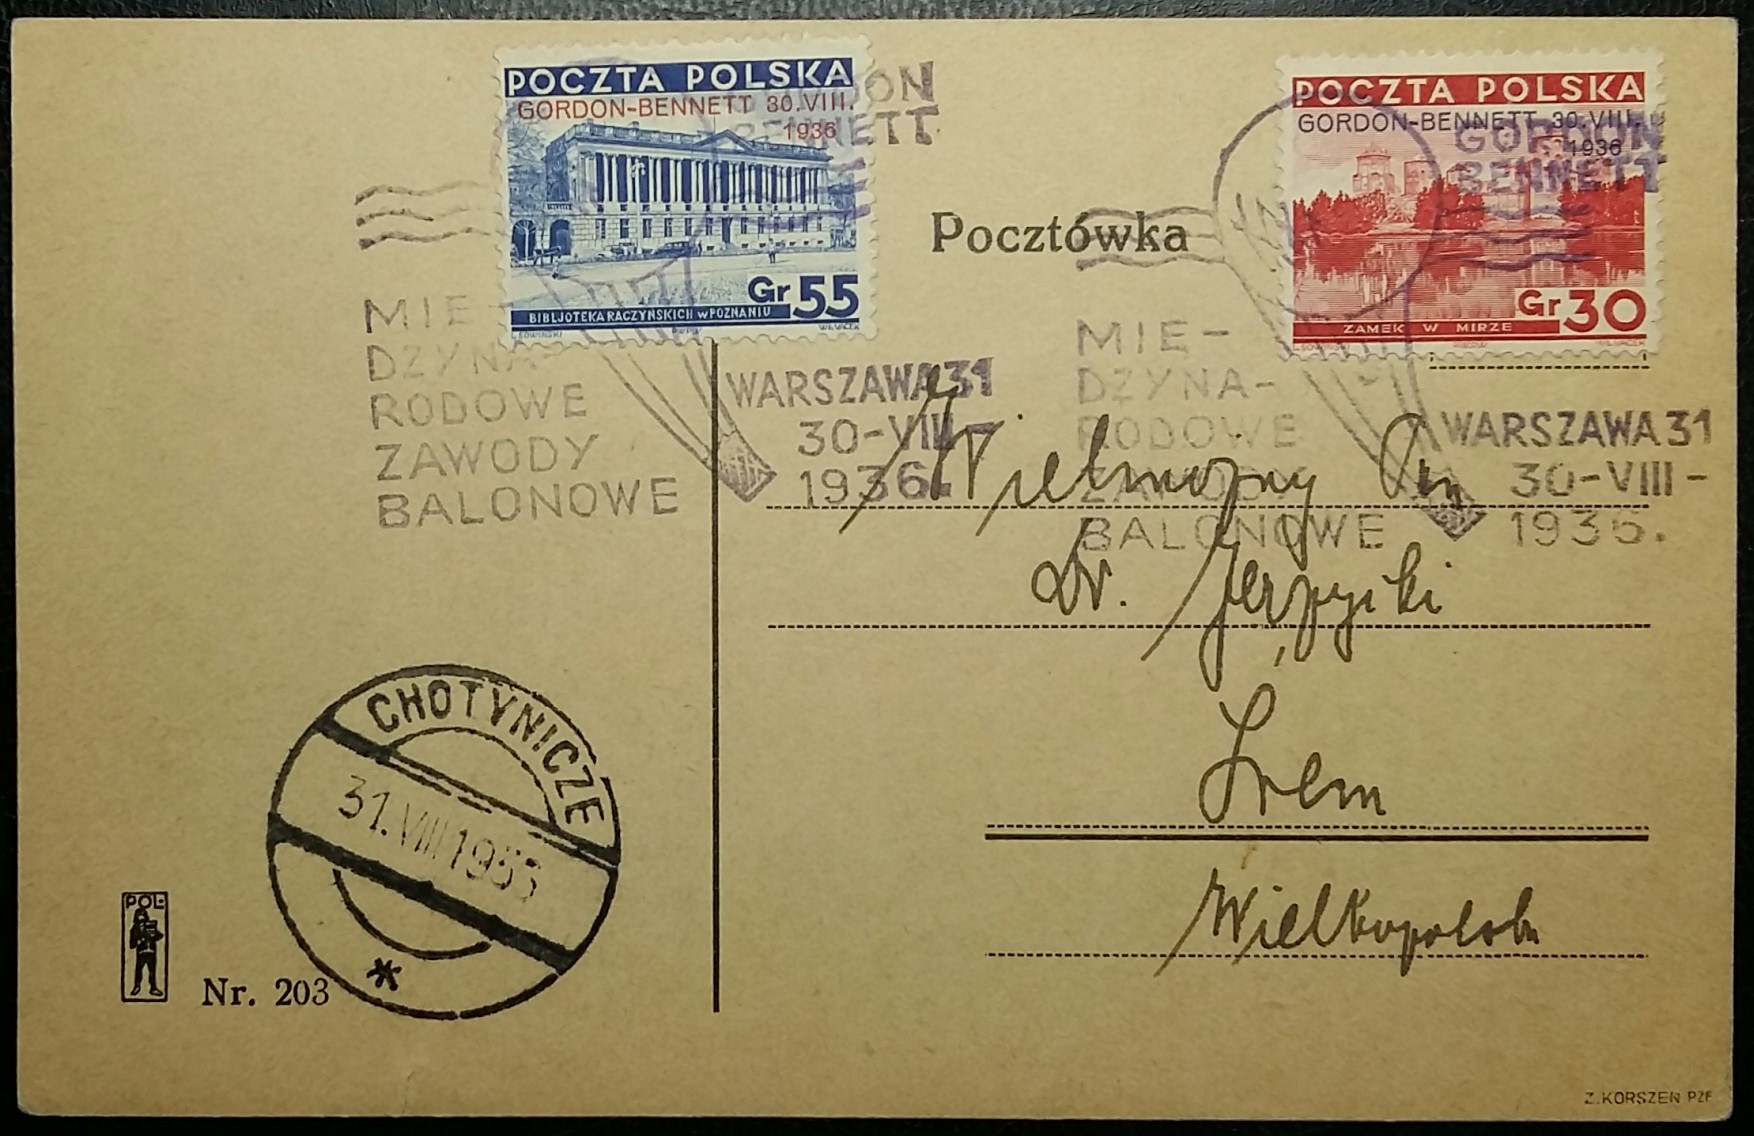 POCZTA POLSKA
GORDON-BENNETT 30.VIII.
1936
Gr 55
BIBLJOTEKA RACZYŃSKICH W POZNANIU
POCZTA POLSKA
GORDON-BENNETT 30.VIII.
1936
Gr 30
ZAMEK W MIRZE
GORDON
BENNETT
MIE-
DZYNA-
RODOWE
ZAWODY
BALONOWE
WARSZAWA 31
30-VIII-
1936.
Pocztówka
GORDON
BENNETT
MIE-
DZYNA-
RODOWE
ZAWODY
BALONOWE
WARSZAWA 31
30-VIII-
1936.
Wielmożny Pan
Dr. Jerzyki
Śrem
Wielkopolska
CHOTYNICZE
31.VIII 19
POL-
Nr. 203
Z. KORSZEŃ PZF